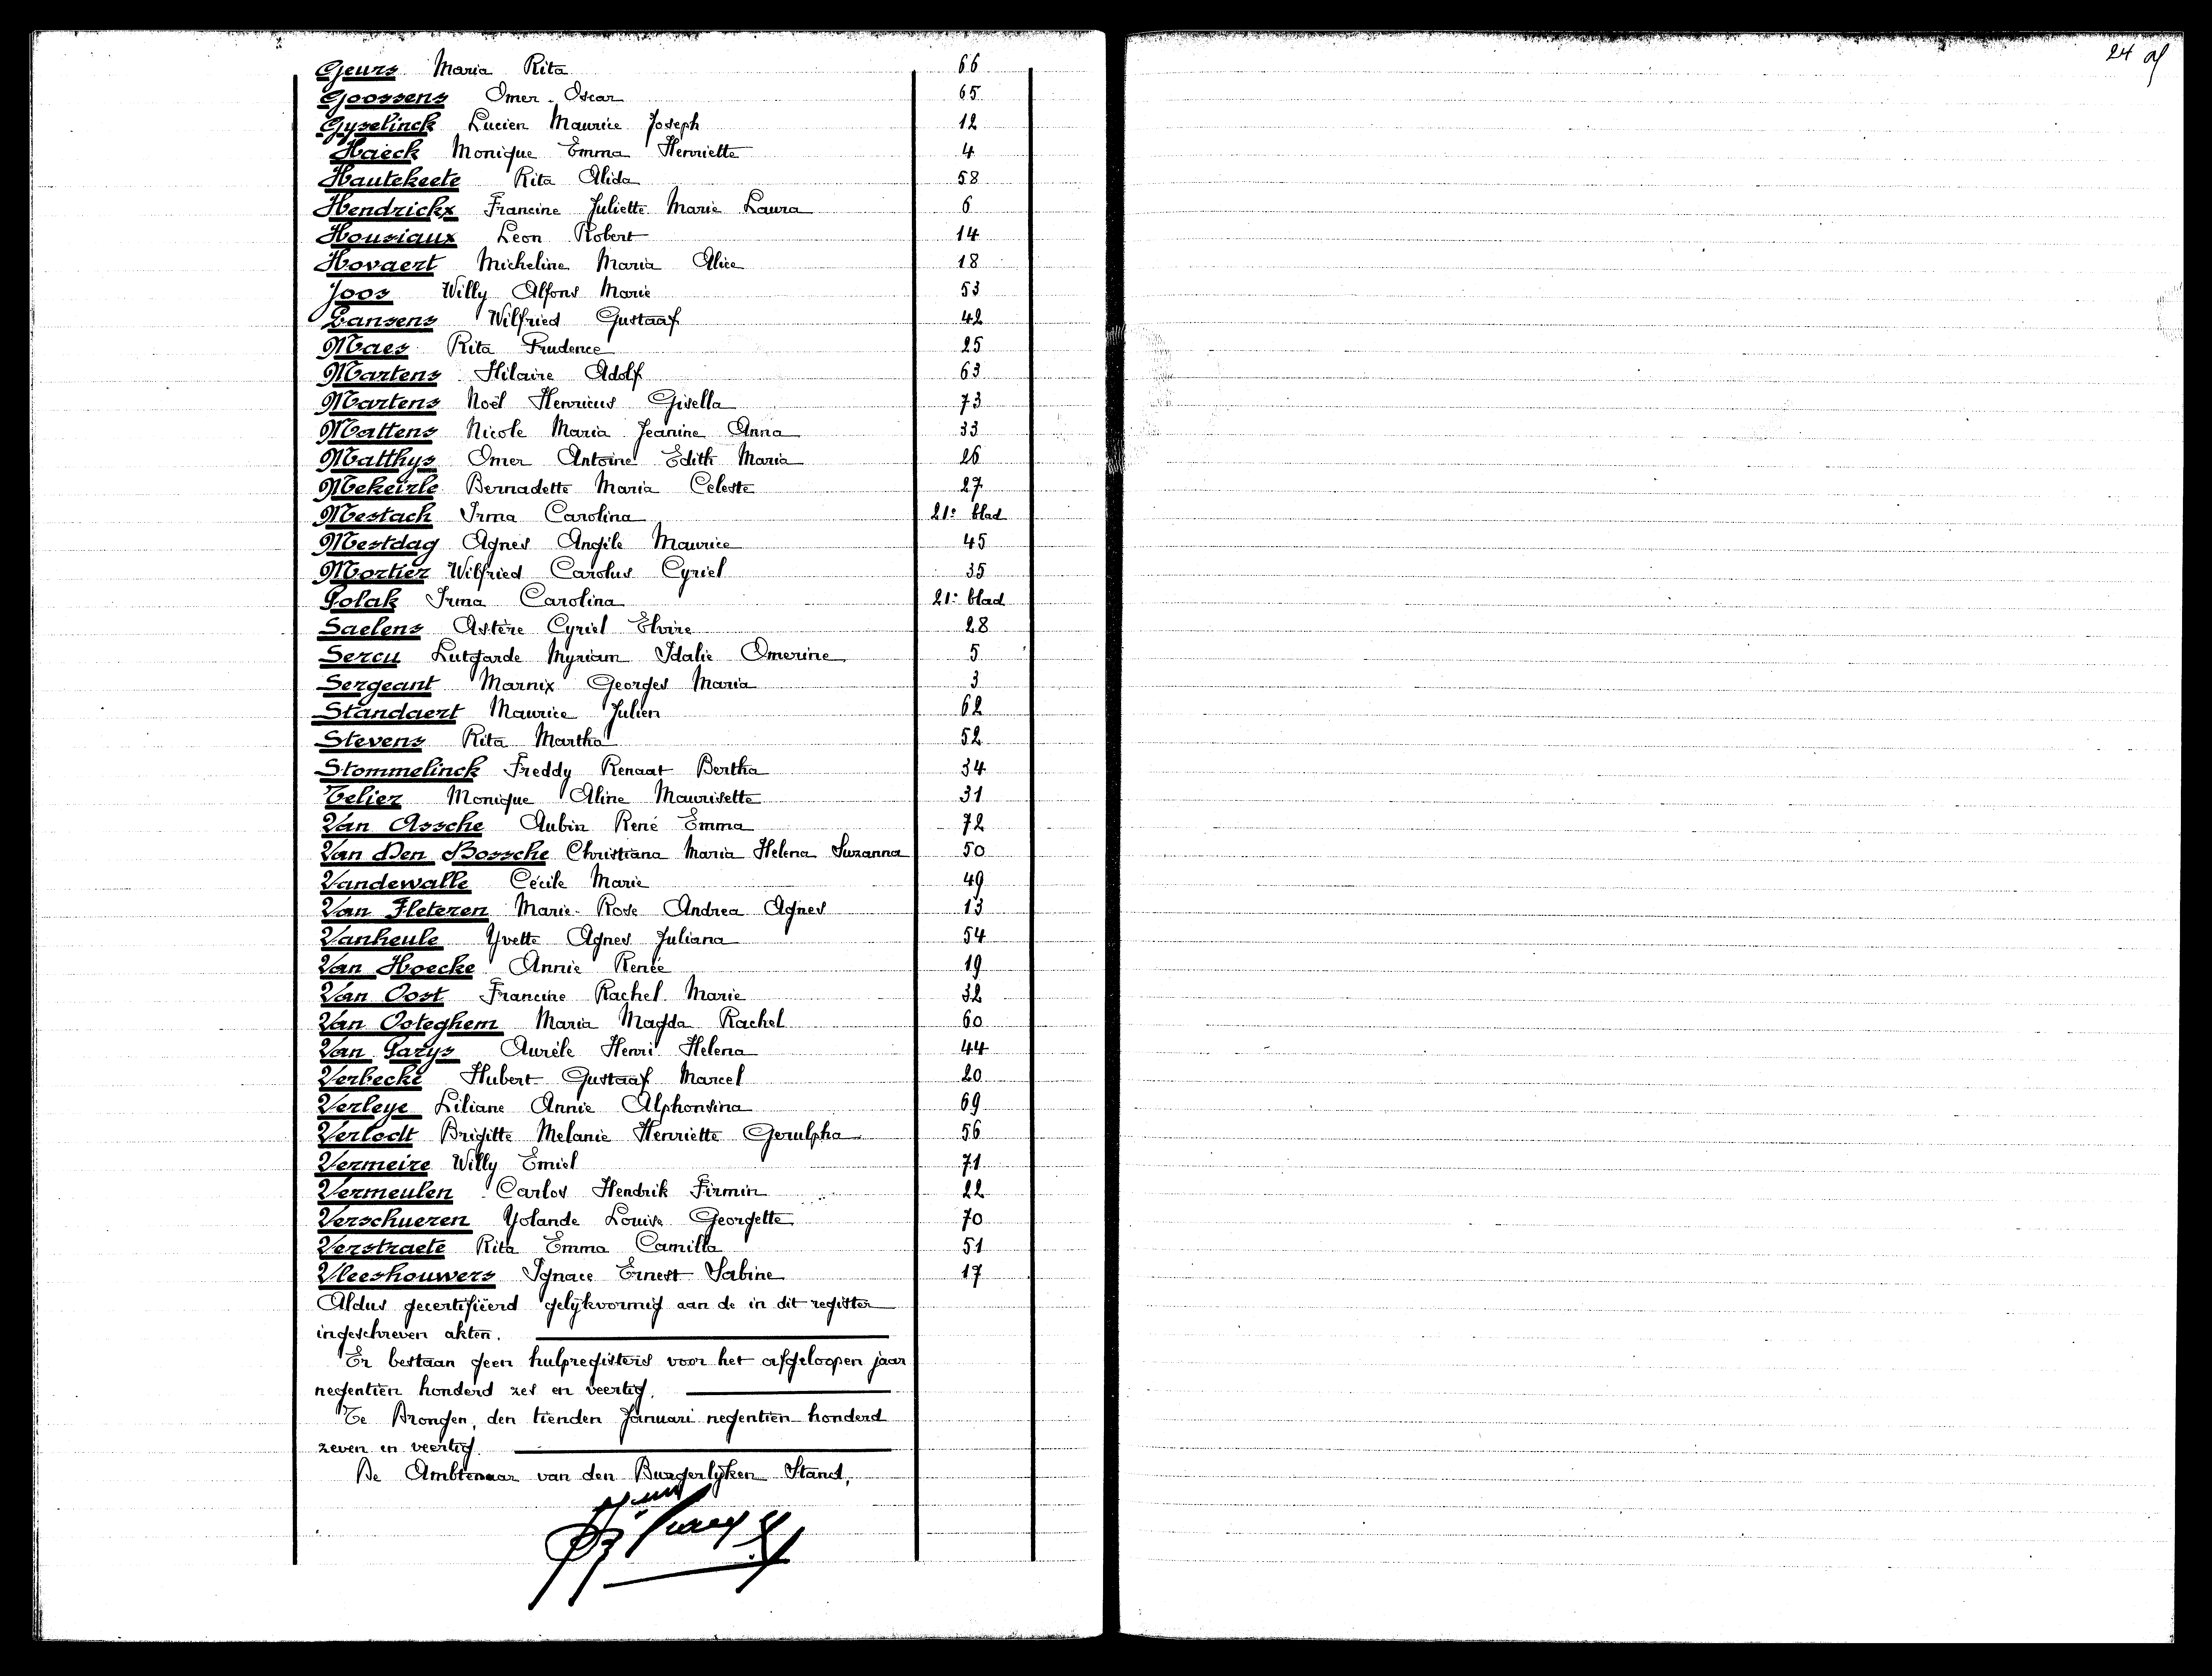 24
Geurs Maria Rita 66
Goossens Omer Oscar 65
Gyselinck Lucien Maurice Joseph 12
Haeck Monique Emma Henriette 4
Hautekeete Rita Alida 58
Hendrickx Francine Juliette Marie Laura 6
Housiaux Leon Robert 14
Hovaert Micheline Maria Alice 18
Joos Willy Alfons Marie 53
Lansens Wilfried Gustaaf 42
Maes Rita Prudence 25
Martens Hilaire Adolf 63
Martens Noël Henricus Gisella 73
Mattens Nicole Maria Jeanine Anna 33
Matthys Omer Antoine Edith Maria 26
Mekeirle Bernadette Maria Celeste 27
Mestach Irma Carolina 21e blad
Mestdag Agnes Angèle Maurice 45
Mortier Wilfried Carolus Cyriel 35
Polak Irma Carolina 21e blad
Saelens Astère Cyriel Elvire 28
Sercu Lutgarde Myriam Idalie Omerine 5
Sergeant Marnix Georges Maria 3
Standaert Maurice Julien 62
Stevens Rita Martha 52
Stommelinck Freddy Renaat Bertha 34
Telier Monique Aline Maurisette 31
Van Assche Aubin René Emma 72
Van Den Bossche Christiana Maria Helena Suzanna 50
Vandewalle Cécile Marie 49
Van Fleteren Marie-Rose Andrea Agnes 13
Vanheule Yvette Agnes Juliana 54
Van Hoecke Annie Renée 19
Van Oost Francine Rachel Marie 32
Van Ooteghem Maria Magda Rachel 60
Van Parys Aurèle Henri Helena 44
Verbeeke Hubert Gustaaf Marcel 20
Verleye Liliane Annie Alphonsina 69
Verlodt Brigitte Melanie Henriette Gerulpha 56
Vermeire Willy Emiel 71
Vermeulen Carlos Hendrik Firmin 22
Verschueren Yolande Louise Georgette 70
Verstraete Rita Emma Camilla 51
Vleeshouwers Ignace Ernest Sabine 17
Aldus gecertifiëerd gelijkvormig aan de in dit register
ingeschreven akten.
Er bestaan geen hulpregisters voor het afgeloopen jaar
negentien honderd zes en veertig.
Te Drongen, den tienden Januari negentien honderd
zeven en veertig.
De Ambtenaar van den Burgerlijken Stand,